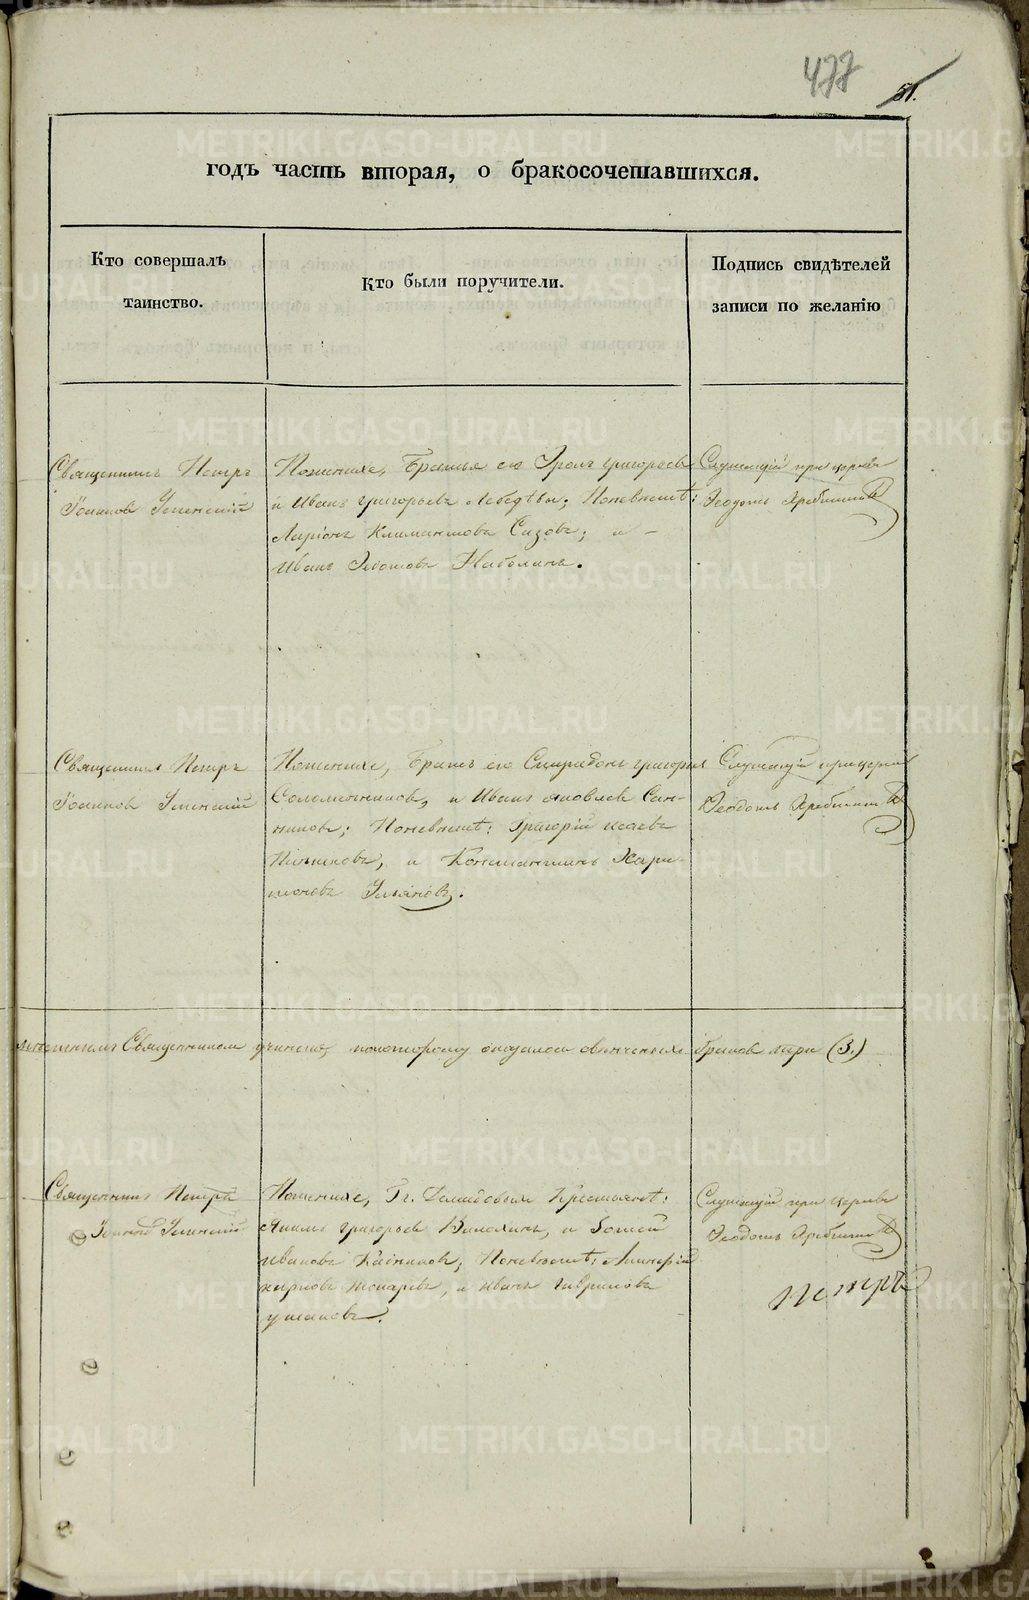 477
51.
годъ часть вторая, о бракосочетавшихся.
Кто совершалъ
таинство.
Кто были поручители.
Подпись свидѣтелей
записи по желанію
Священникъ Петръ
Іоанновъ Успенскій
Поженихе, Братья его григорьевъ
и Иванъ григорьевъ Лебедевы; Поневѣсте:
Ларіонъ Климантовъ Сизовъ; и
Иванъ Наболинъ.
Служащій при церкви
Ѳеодотъ
Священникъ Петръ
Іоанновъ Успенскій
Поженихе, Братъ его Спиридонъ григорьев
Соломенниковъ, и Иванъ яковлевъ Сан-
никовъ; Поневѣсте: Григорій исаевъ
и Константинъ Хари-
тоновъ
Служащій прицеркви
Ѳеодотъ
Священникомъ покоторому оказалось браковъ три (3.)
Священникъ Петръ
Успенскій
Поженихе, Гг. Демидовыхъ Крестьяне:
григорьевъ и
ивановъ Поневѣсте:
карповъ и иванъ гавриловъ
ушаковъ.
Служащій при церкви
Ѳеодотъ
Петръ
METRIKI.GASO-URAL.RU